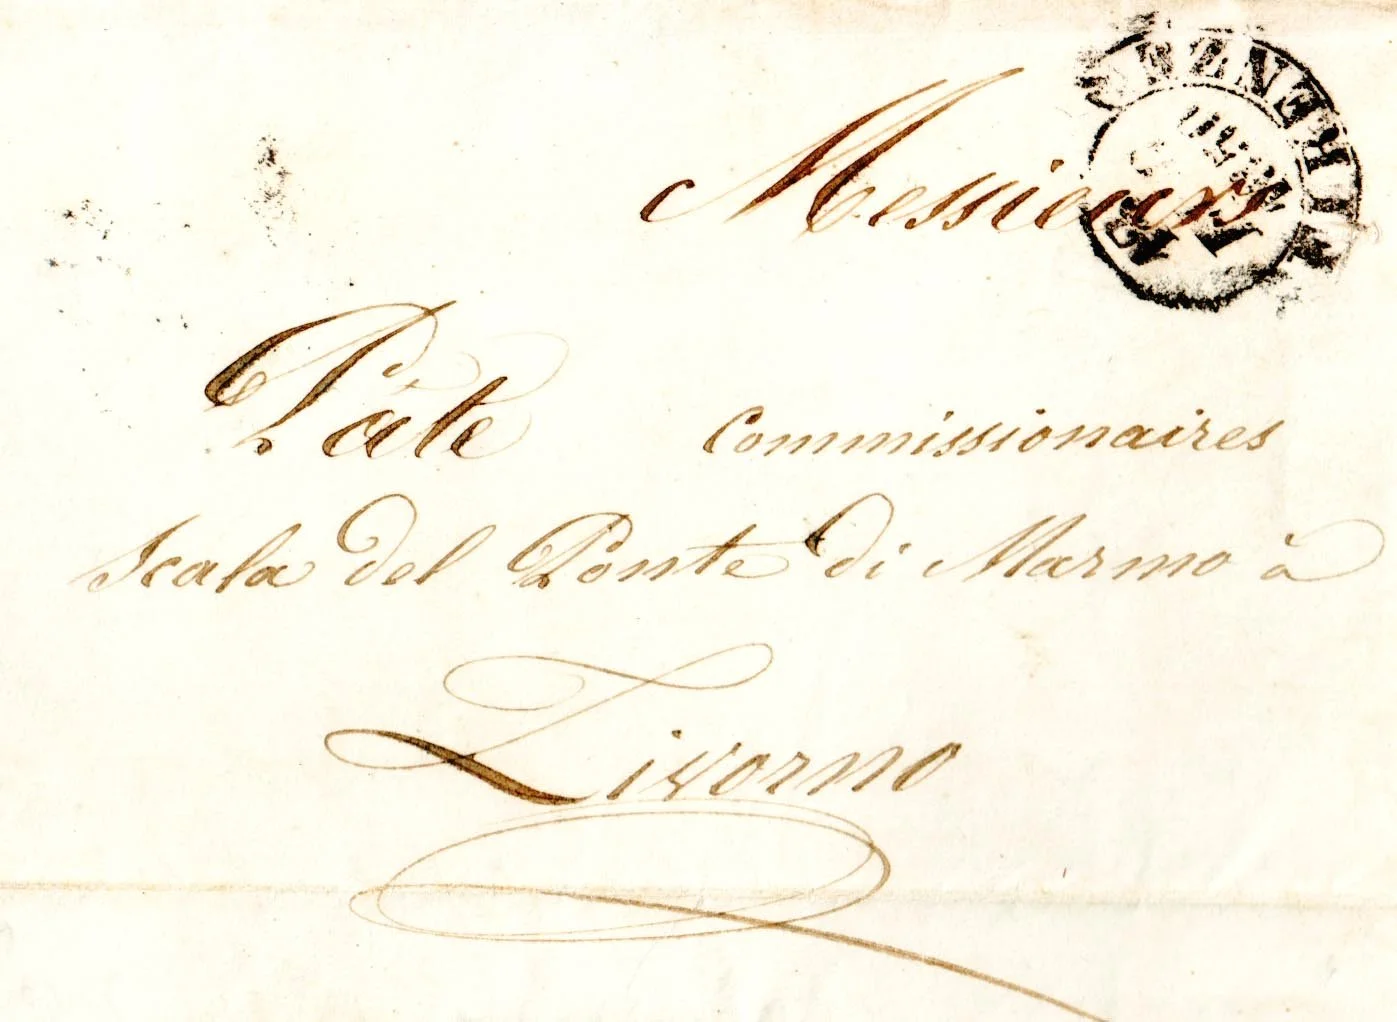 FIRENZE
Messieurs
Pate Commissionaires
Scala del Ponte di Marmo à
Livorno